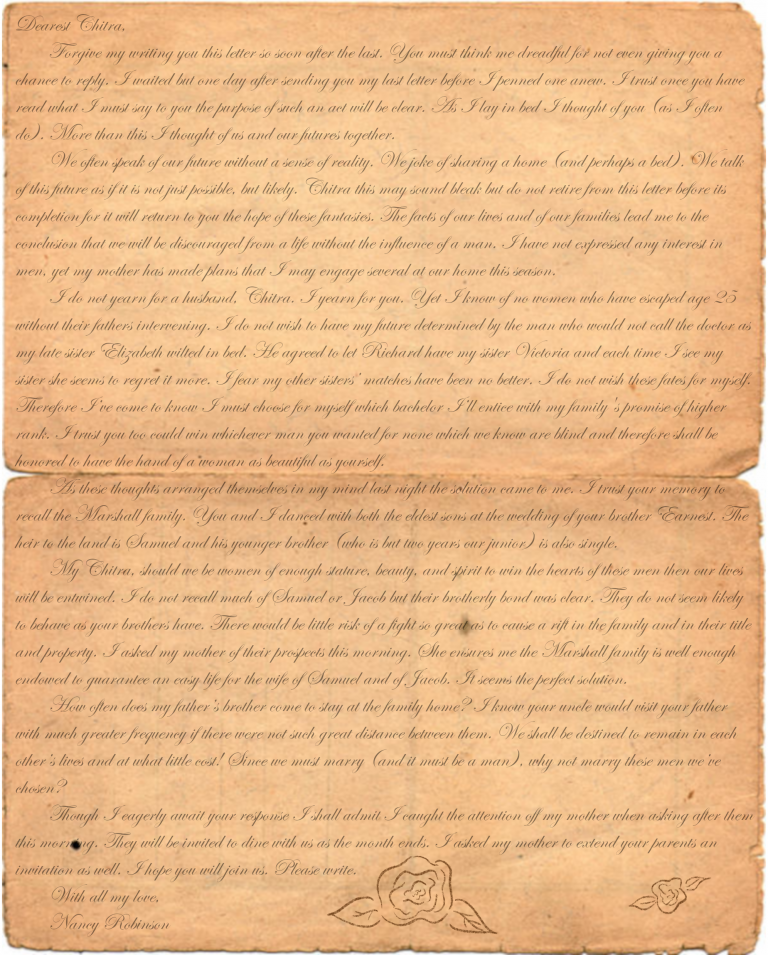 Dearest Chitra,
Forgive my writing you this letter so soon after the last. You must think me dreadful for not even giving you a
chance to reply. I waited but one day after sending you my last letter before I penned one anew. I trust once you have
read what I must say to you the purpose of such an act will be clear. As I lay in bed I thought of you (as I often
do). More than this I thought of us and our futures together.
We often speak of our future without a sense of reality. We joke of sharing a home (and perhaps a bed). We talk
of this future as if it is not just possible, but likely. Chitra this may sound bleak but do not retire from this letter before its
completion for it will return to you the hope of these fantasies. The facts of our lives and of our families lead me to the
conclusion that we will be discouraged from a life without the influence of a man. I have not expressed any interest in
men, yet my mother has made plans that I may engage several at our home this season.
I do not yearn for a husband, Chitra. I yearn for you. Yet I know of no women who have escaped age 25
without their fathers intervening. I do not wish to have my future determined by the man who would not call the doctor as
my late sister Elizabeth wilted in bed. He agreed to let Richard have my sister Victoria and each time I see my
sister she seems to regret it more. I fear my other sisters' matches have been no better. I do not wish these fates for myself.
Therefore I've come to know I must choose for myself which bachelor I'll entice with my family's promise of higher
rank. I trust you too could win whichever man you wanted for none which we know are blind and therefore shall be
honored to have the hand of a woman as beautiful as yourself.
As these thoughts arranged themselves in my mind last night the solution came to me. I trust your memory to
recall the Marshall family. You and I danced with both the eldest sons at the wedding of your brother Earnest. The
heir to the land is Samuel and his younger brother (who is but two years our junior) is also single.
My Chitra, should we be women of enough stature, beauty, and spirit to win the hearts of these men then our lives
will be entwined. I do not recall much of Samuel or Jacob but their brotherly bond was clear. They do not seem likely
to behave as your brothers have. There would be little risk of a fight so great as to cause a rift in the family and in their title
and property. I asked my mother of their prospects this morning. She ensures me the Marshall family is well enough
endowed to guarantee an easy life for the wife of Samuel and of Jacob. It seems the perfect solution.
How often does my father's brother come to stay at the family home? I know your uncle would visit your father
with much greater frequency if there were not such great distance between them. We shall be destined to remain in each
other's lives and at what little cost! Since we must marry (and it must be a man), why not marry these men we've
chosen?
Though I eagerly await your response I shall admit I caught the attention off my mother when asking after them
this morning. They will be invited to dine with us as the month ends. I asked my mother to extend your parents an
invitation as well. I hope you will join us. Please write.
With all my love,
Nancy Robinson